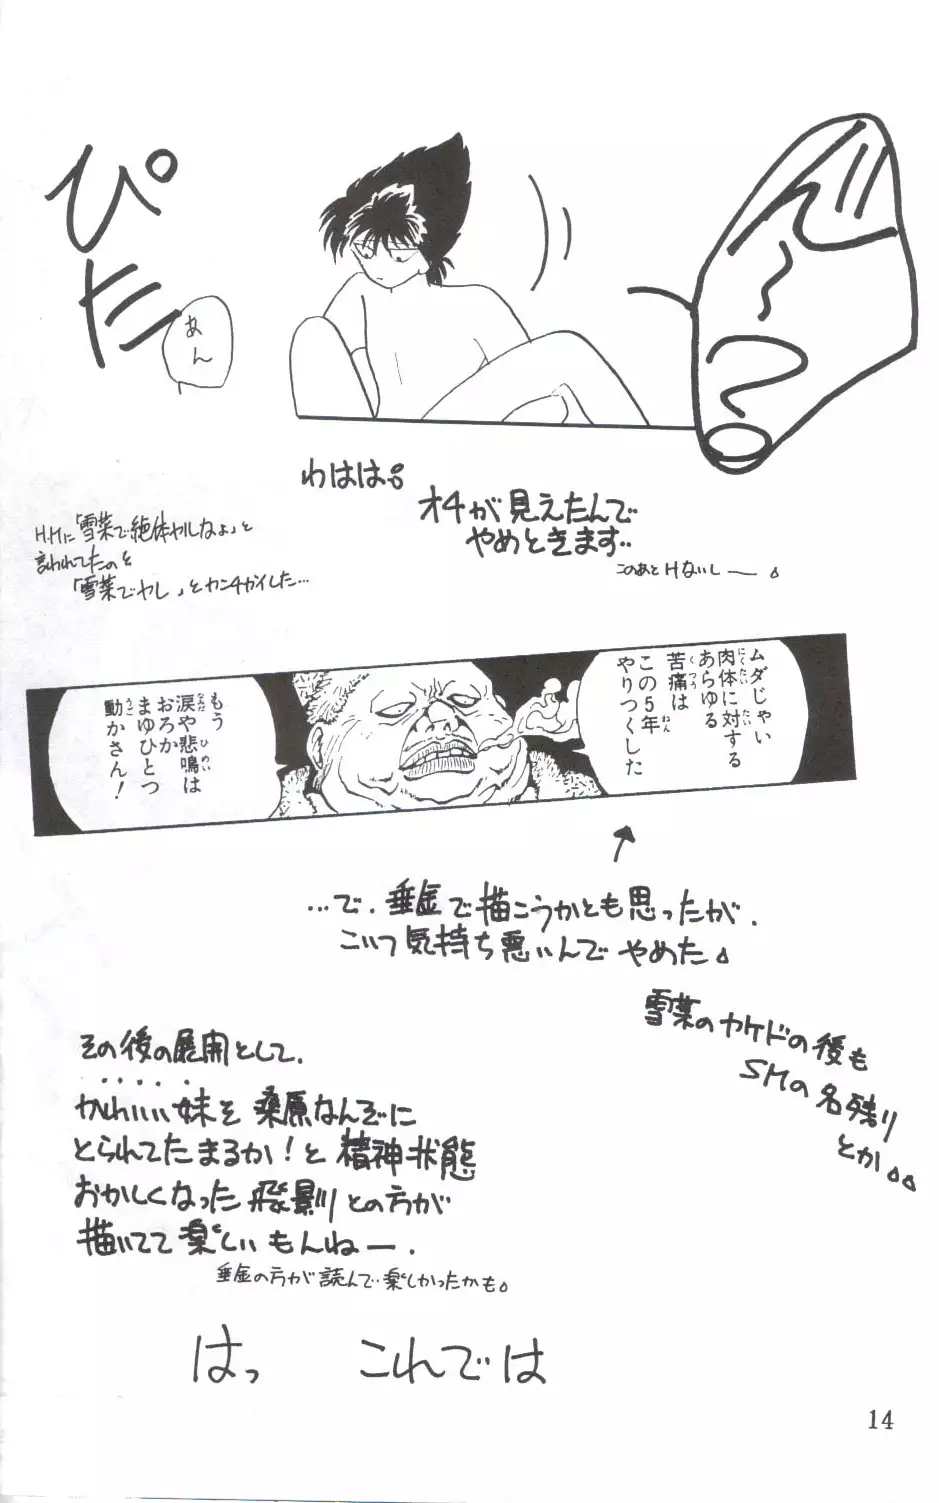 ぴた
あん
わはは。
オチが見えたんで
やめときます‥
このあとHないしー。
H.Hに「雪菜で絶体ヤルなよ」と
言われてたのを
「雪菜でヤレ」とカンチガイした…
ムダじゃい
肉体に対する
あらゆる
苦痛は
この5年
やりつくした
もう
涙や悲鳴は
おろか
まゆひとつ
動かさん!
…で、垂金で描こうかとも思ったが、
こいつ気持ち悪いんで やめた。
雪菜のヤケドの後も
SMの名残り
とか。。
その後の展開として、
かわいい妹を 桑原なんぞに
とられてたまるか!と 精神状態
おかしくなった 飛影 との方が
描いてて 楽しいもんねー.
垂金の方が読んで‥楽しかったかも。
はっ これでは
14